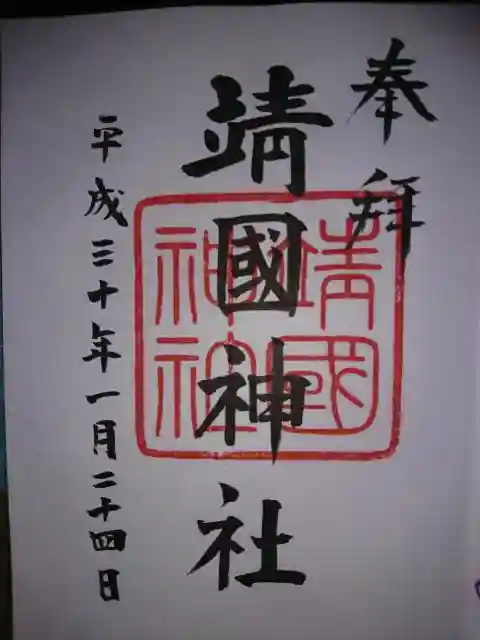 奉拝
靖國神社
靖國
神社
平成三十年一月二十四日